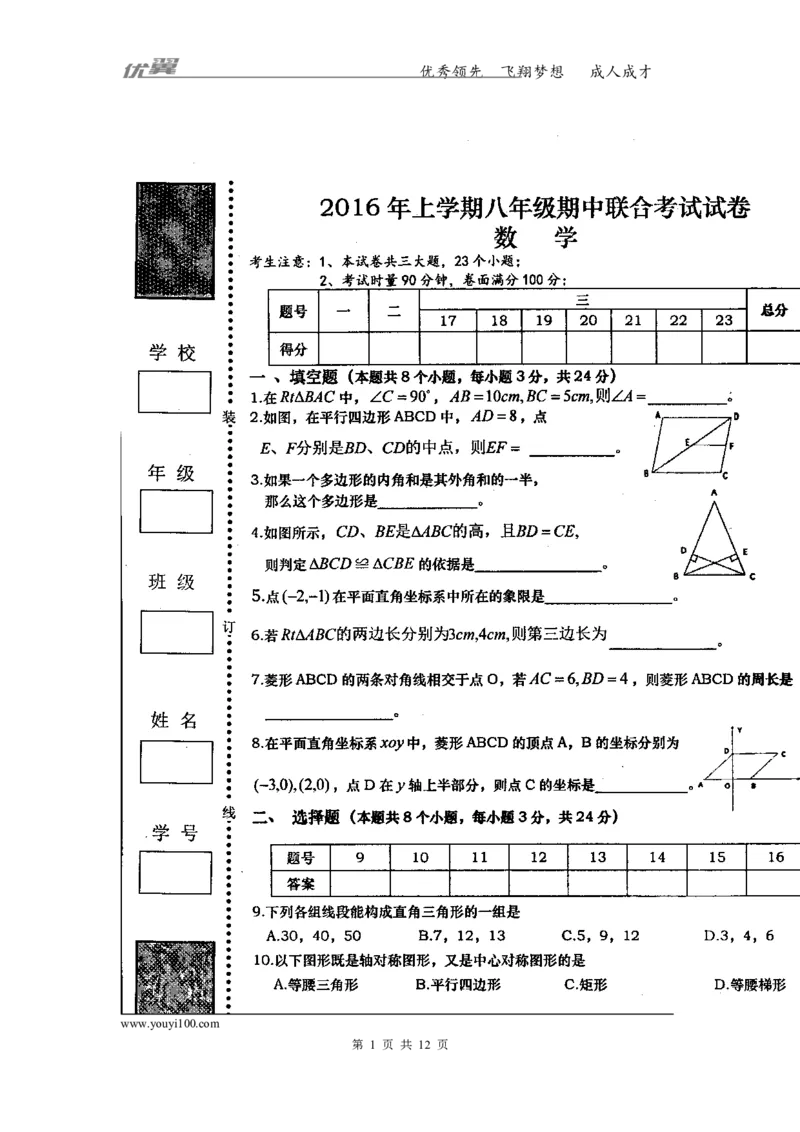 优翼
优秀领先 飞翔梦想 成人成才
2016 年上学期八年级期中联合考试试卷
数 学
考生注意:1、本试卷共三大题,23 个小题;
2、考试时量 90 分钟,卷面满分 100 分;
题号 一 二 三 总分
17 18 19 20 21 22 23
得分
一 、填空题(本题共 8 个小题,每小题 3 分,共 24 分)
1.在 Rt△BAC 中,∠C = 90°,AB = 10cm, BC = 5cm,则∠A = ________。
2.如图,在平行四边形 ABCD 中,AD = 8,点
E、F分别是BD、CD的中点,则EF = ________。
A D
E F
B C
3.如果一个多边形的内角和是其外角和的一半,
那么这个多边形是________。
4.如图所示,CD、BE是△ABC的高,且BD = CE,
则判定 △BCD ≌ △CBE 的依据是________。
A
D E
B C
5.点 (−2,−1) 在平面直角坐标系中所在的象限是________。
6.若 Rt△ABC的两边长分别为3cm,4cm,则第三边长为________。
7.菱形 ABCD 的两条对角线相交于点 O,若 AC = 6, BD = 4,则菱形 ABCD 的周长是
________。
8.在平面直角坐标系 xoy 中,菱形 ABCD 的顶点 A,B 的坐标分别为
(−3,0),(2,0),点 D 在 y 轴上半部分,则点 C 的坐标是________。
Y
D C
A O B
二、 选择题(本题共 8 个小题,每小题 3 分,共 24 分)
题号 9 10 11 12 13 14 15 16
答案
9.下列各组线段能构成直角三角形的一组是
A.30,40,50 B.7,12,13 C.5,9,12 D.3,4,6
10.以下图形既是轴对称图形,又是中心对称图形的是
A.等腰三角形 B.平行四边形 C.矩形 D.等腰梯形
学 校
装
年 级
班 级
订
姓 名
线
学 号
www.youyi100.com
第 1 页 共 12 页